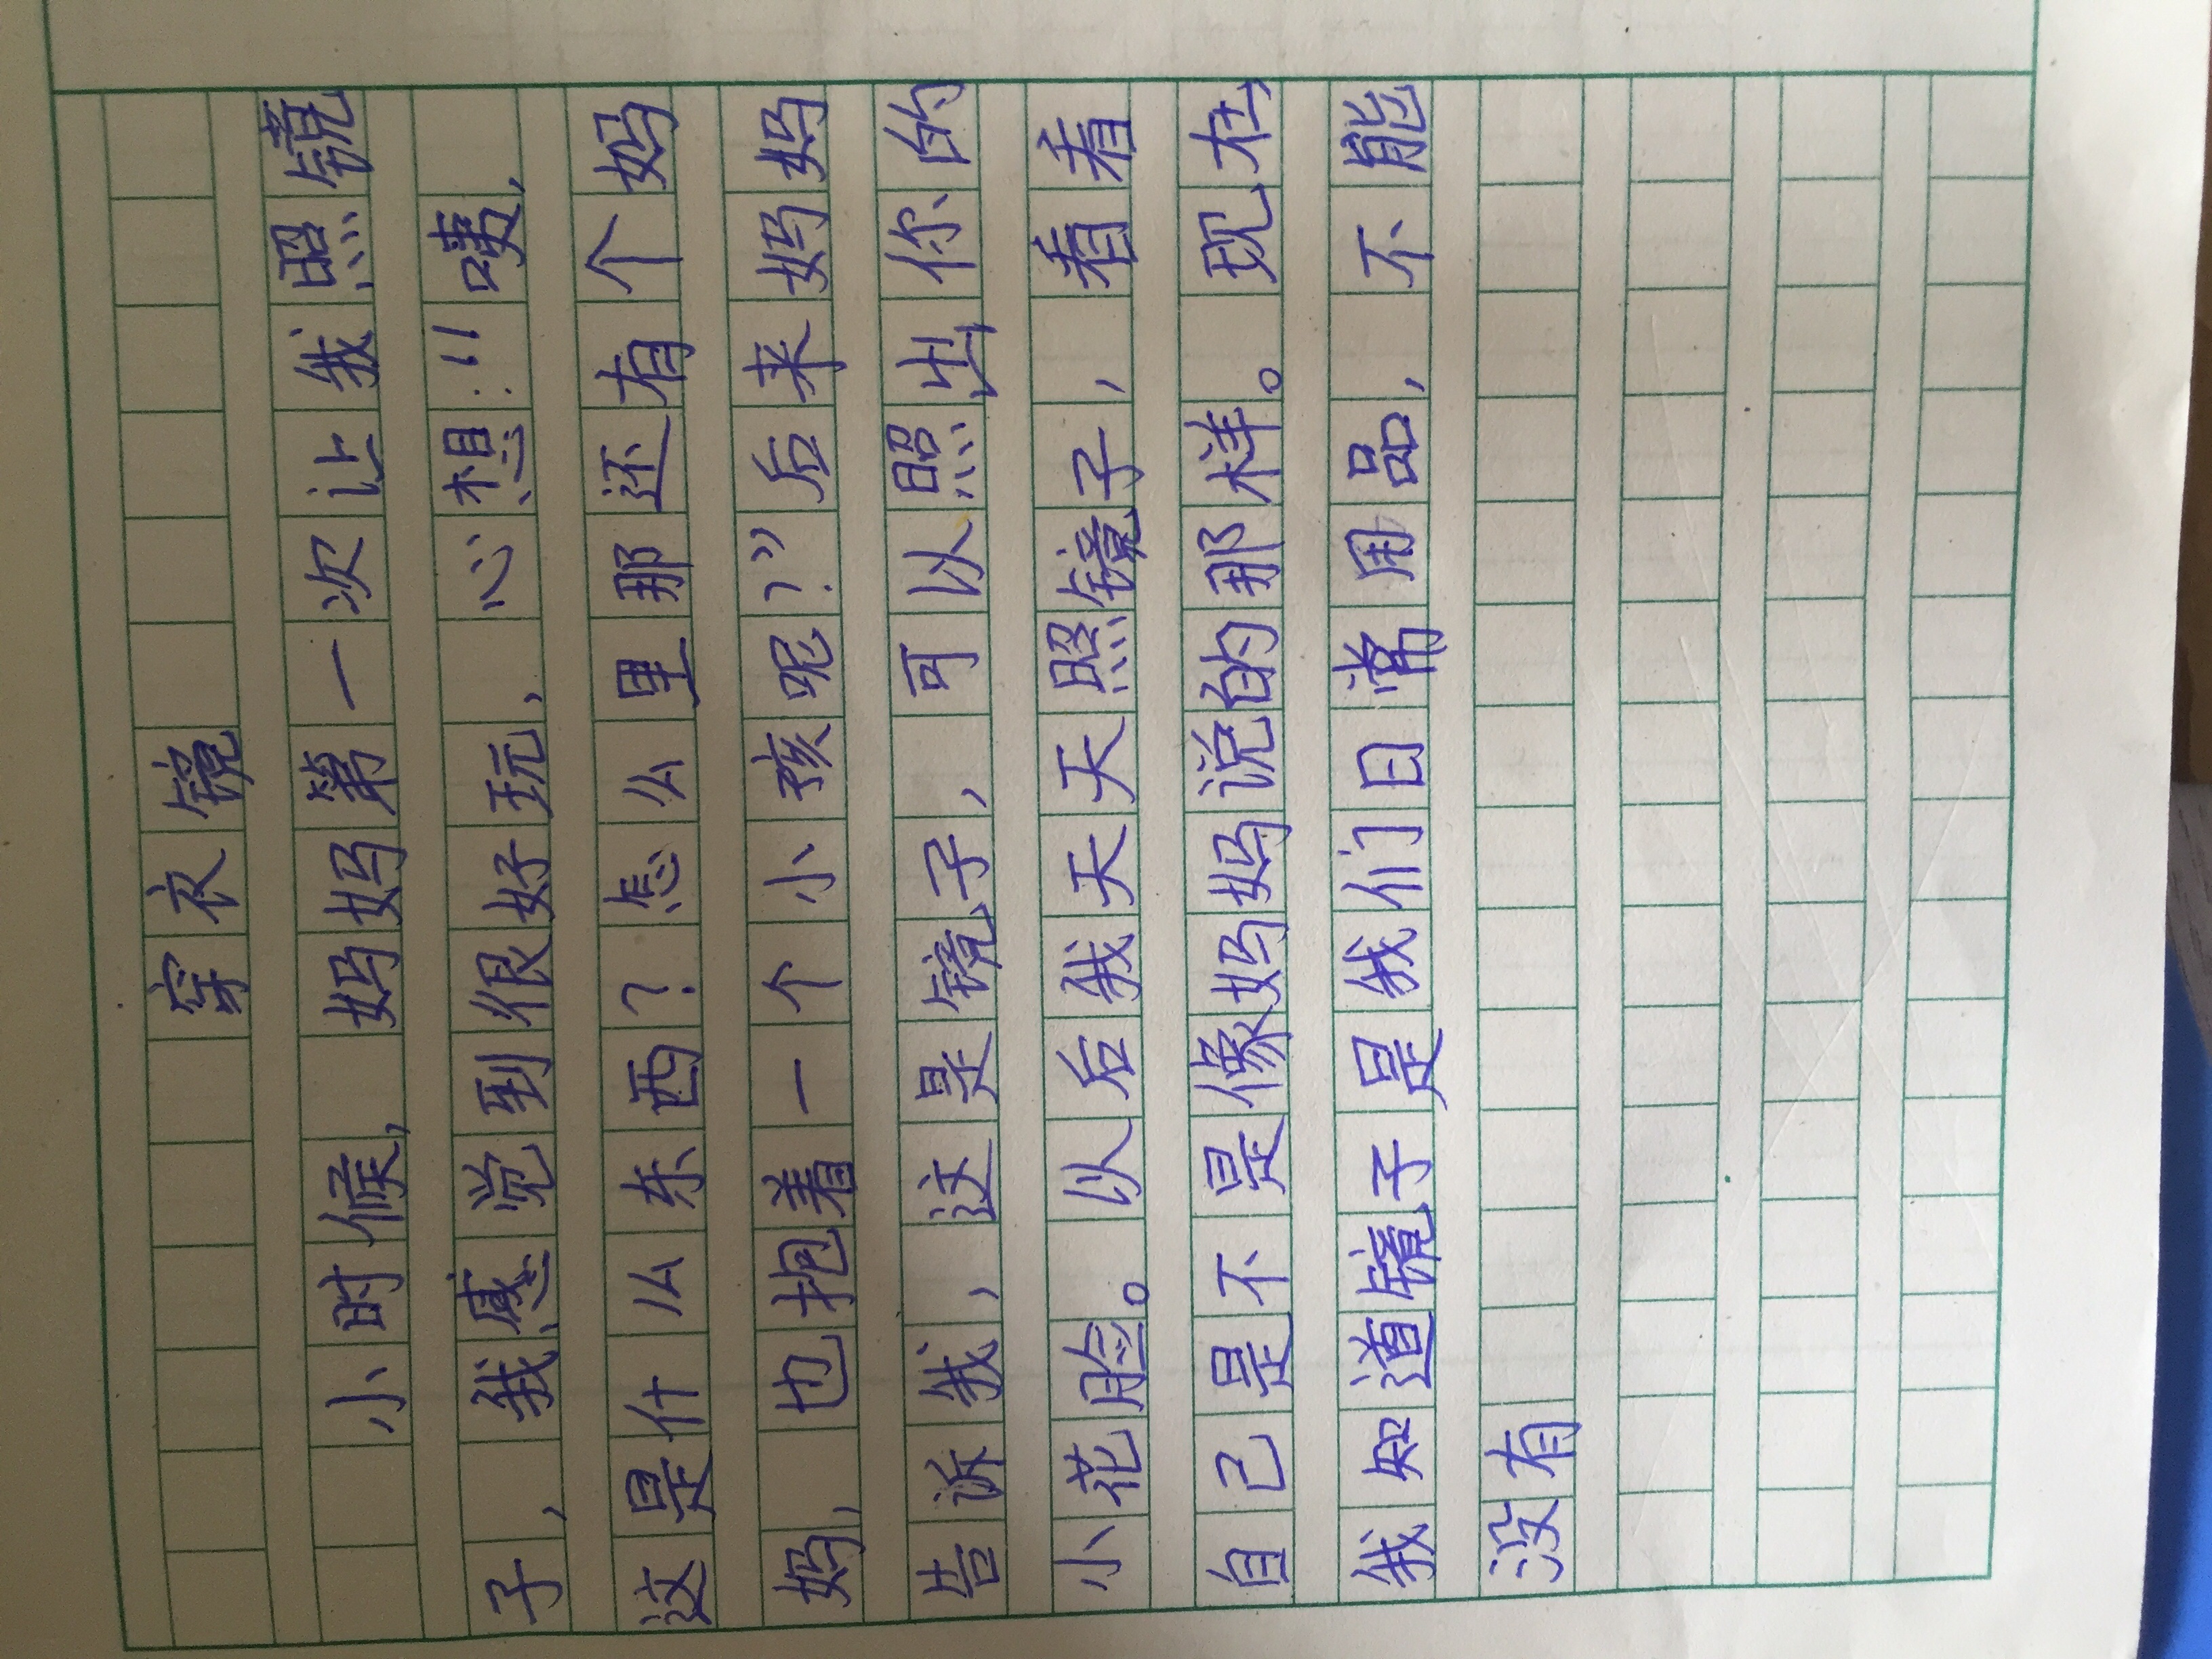 穿衣镜
小时候,妈妈第一次让我照镜
子,我感觉到很好玩,心想:“噫,
这是什么东西?怎么里那还有个妈
妈,也抱着一个小孩呢?”后来妈妈
告诉我,这是镜子,可以照出你的
小花脸。以后我天天照镜子,看看
自己是不是像妈妈说的那样。现在
我知道镜子是我们日常用品,不能
没有